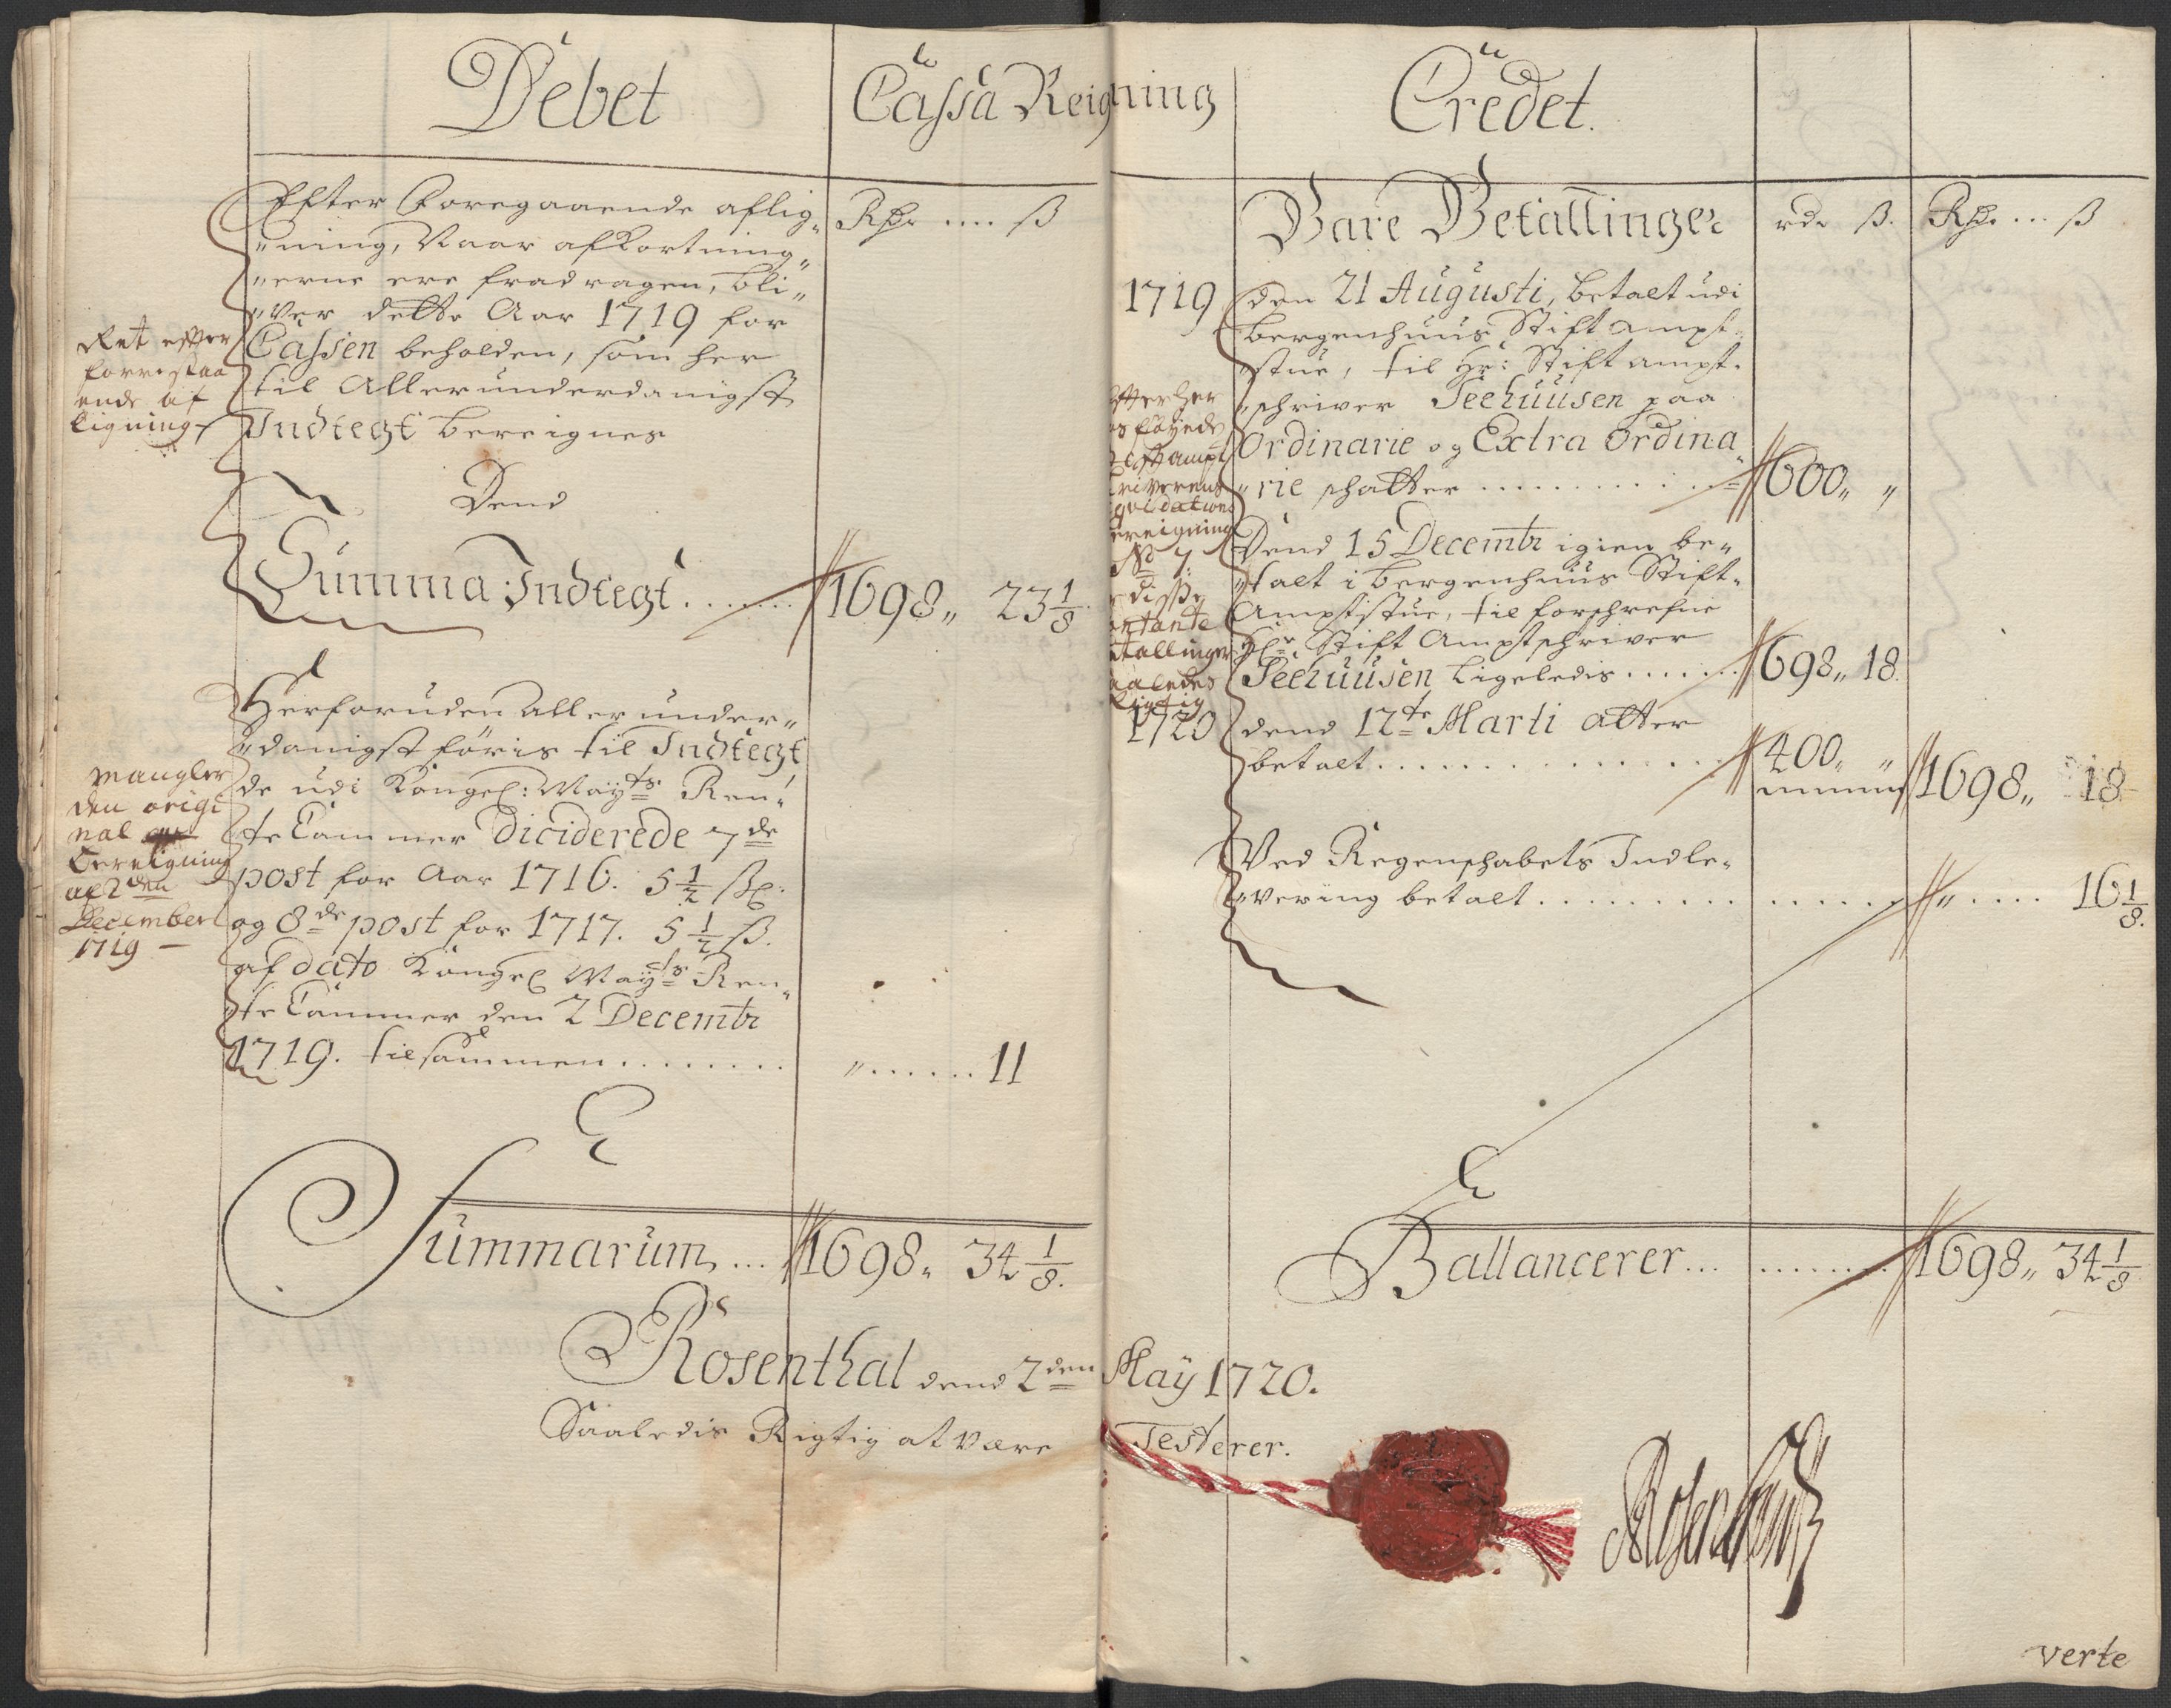 Debet
Cassa Reigning
Efter Foregaaende aflig„
„ning, Naar afkortning„
„erne ere fradragen, bli„
„ver dette Aar 1719 for
Cassen beholden, som her
til Allerunderdanigst
Indtegt bereignes
Rdr .... ß
Ret efter
forrestaa
ende af
ligning
Dend
Summa Indtegt....... 1698„ 23 1/8
Herforuden Allerunder„
„danigst føris til Indtegt
de udi Kongel: Mayts Ren„
te Cammer Diciderede 7de
post for Aar 1716. 5 1/2 ß:
og 8de post for 1717. 5 1/2 ß.
af dato Kongel Mayts Ren„
„te Cammer den 2 Decembr
1719. tilsammen........ „...... 11
mangler
den origi
nal
Bereigning
af 2den
December
1719 —
Summarum... 1698„ 34 1/8.
Credet.
Bare Betallinger
rdr ß. Rdr ... ß
1719
den 21 Augusti, betalt udi
bergenhuus Stift ampt„
„stue, til Hr: Stift ampt„
„schriver Seehuusen paa
Ordinarie og Extra Ordina„
„rie schatter ........... 600„ „
Dend 15 Decembr igien be„
„talt i bergenhuus Stift„
Amptstue, til forschrefne
Hr Stift Amptschriver
Seehuusen ligeledis....... 698„ 18.
1720
dend 12te Marti atter
betalt............... 400„ „
1698„ 18
fter her
os føyede
tift ampt
riverens
qvidations
ereigning
No 7:
disse
ontante
etallinger
aaledes
rigtig
Ved Regenschabets Indle„
„vering betalt............... „.... 16 1/8.
Ballancerer........... 1698„ 34 1/8
Rosenthal dend 2den May 1720.
Saaledis Rigtig at være Testerer.
verte